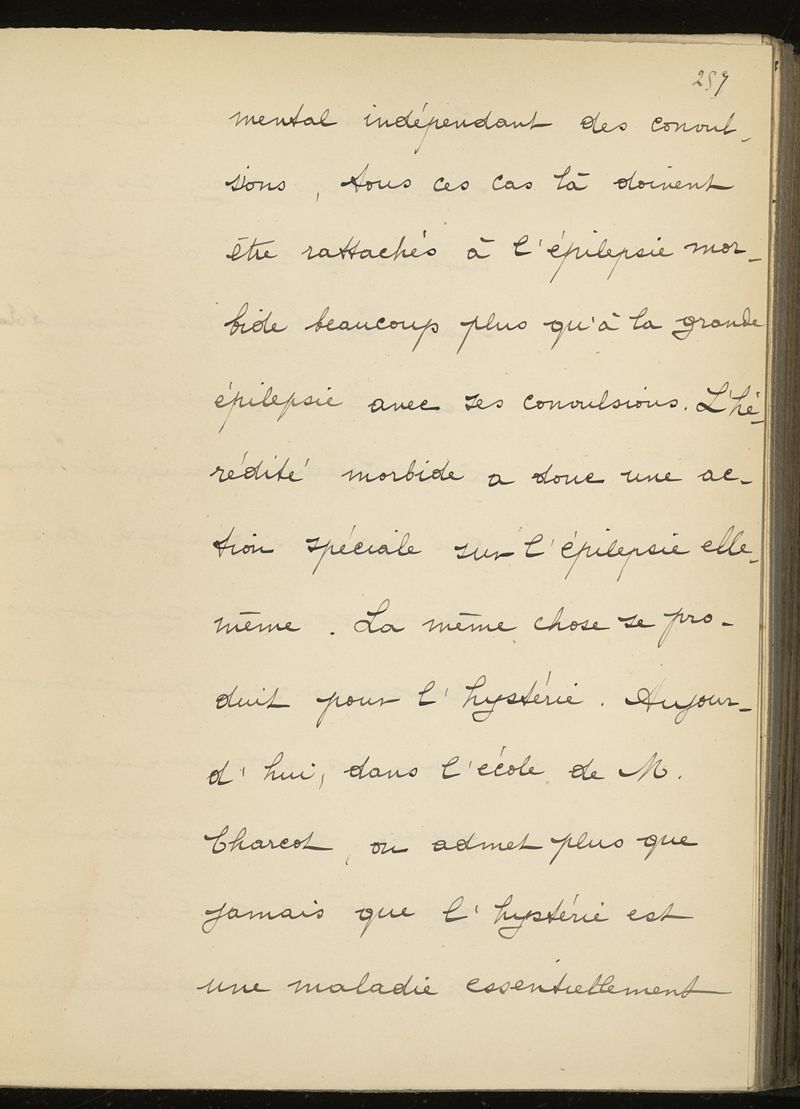 257
mental indépendant des convul-
sions, tous ces cas là doivent
être rattachés à l'épilepsie mor-
bide beaucoup plus qu'à la grande
épilepsie avec ses convulsions. L'hé-
rédité morbide a donc une ac-
tion spéciale sur l'épilepsie elle-
même. La même chose se pro-
duit pour l'hystérie. Aujour-
d'hui, dans l'école de M.
Charcot, on admet plus que
jamais que l'hystérie est
une maladie essentiellement